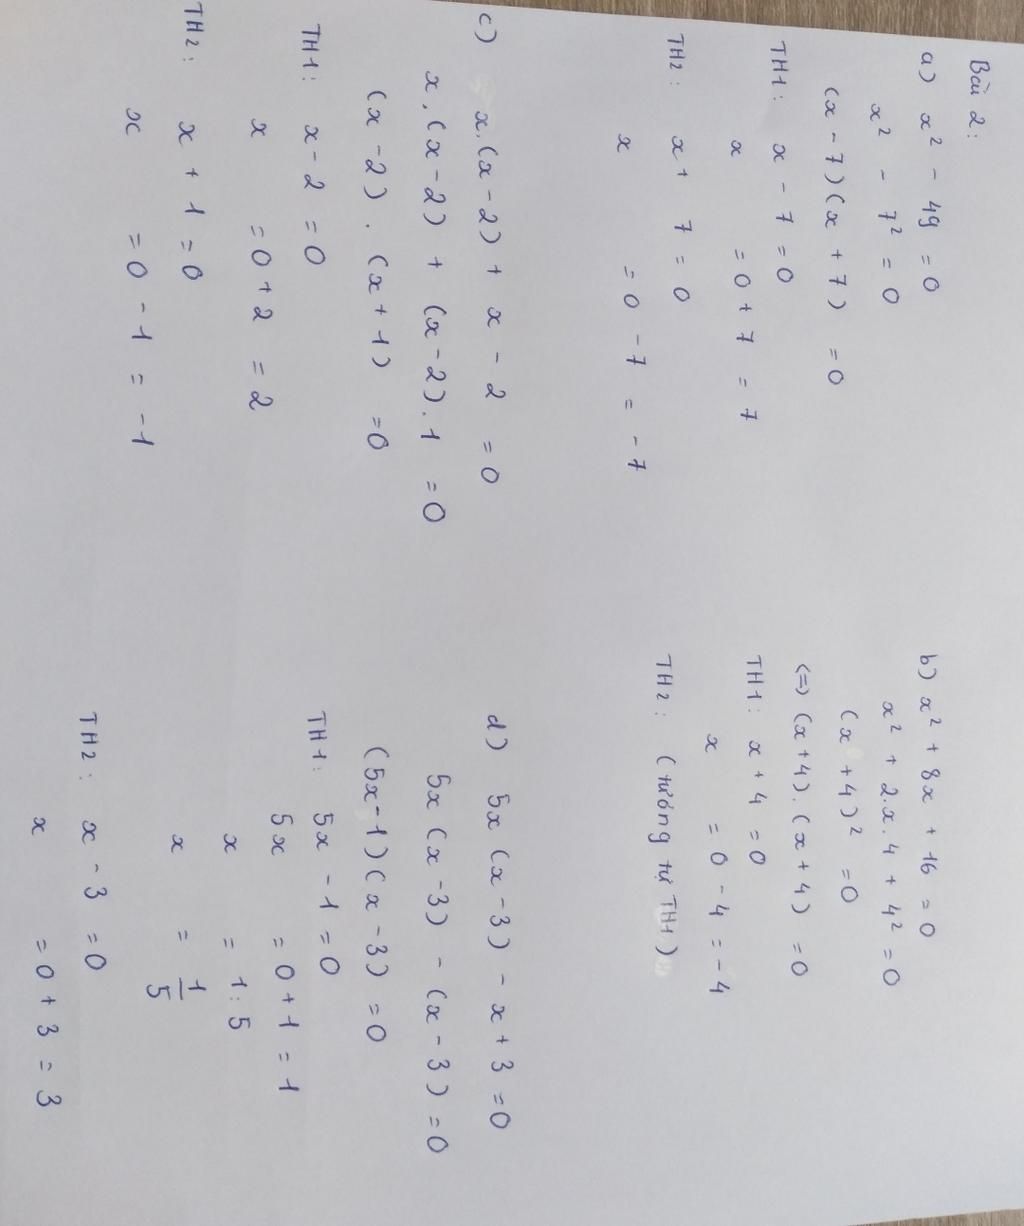 Bài 2:
a) x² - 49 = 0
x² - 7² = 0
(x - 7)(x + 7) = 0
TH1: x - 7 = 0
x = 0 + 7 = 7
TH2: x + 7 = 0
x = 0 - 7 = - 7
b) x² + 8x + 16 = 0
x² + 2.x.4 + 4² = 0
(x + 4)² = 0
(=) (x+4).(x+4) = 0
TH1: x + 4 = 0
x = 0 - 4 = - 4
TH2: (tương tự TH1)
c) x.(x - 2) + x - 2 = 0
x.(x - 2) + (x - 2).1 = 0
(x - 2).(x + 1) = 0
TH1: x - 2 = 0
x = 0 + 2 = 2
TH2: x + 1 = 0
x = 0 - 1 = - 1
d) 5x (x - 3) - x + 3 = 0
5x (x - 3) - (x - 3) = 0
(5x - 1)(x - 3) = 0
TH1: 5x - 1 = 0
5x = 0 + 1 = 1
x = 1 : 5
x = 1/5
TH2: x - 3 = 0
x = 0 + 3 = 3